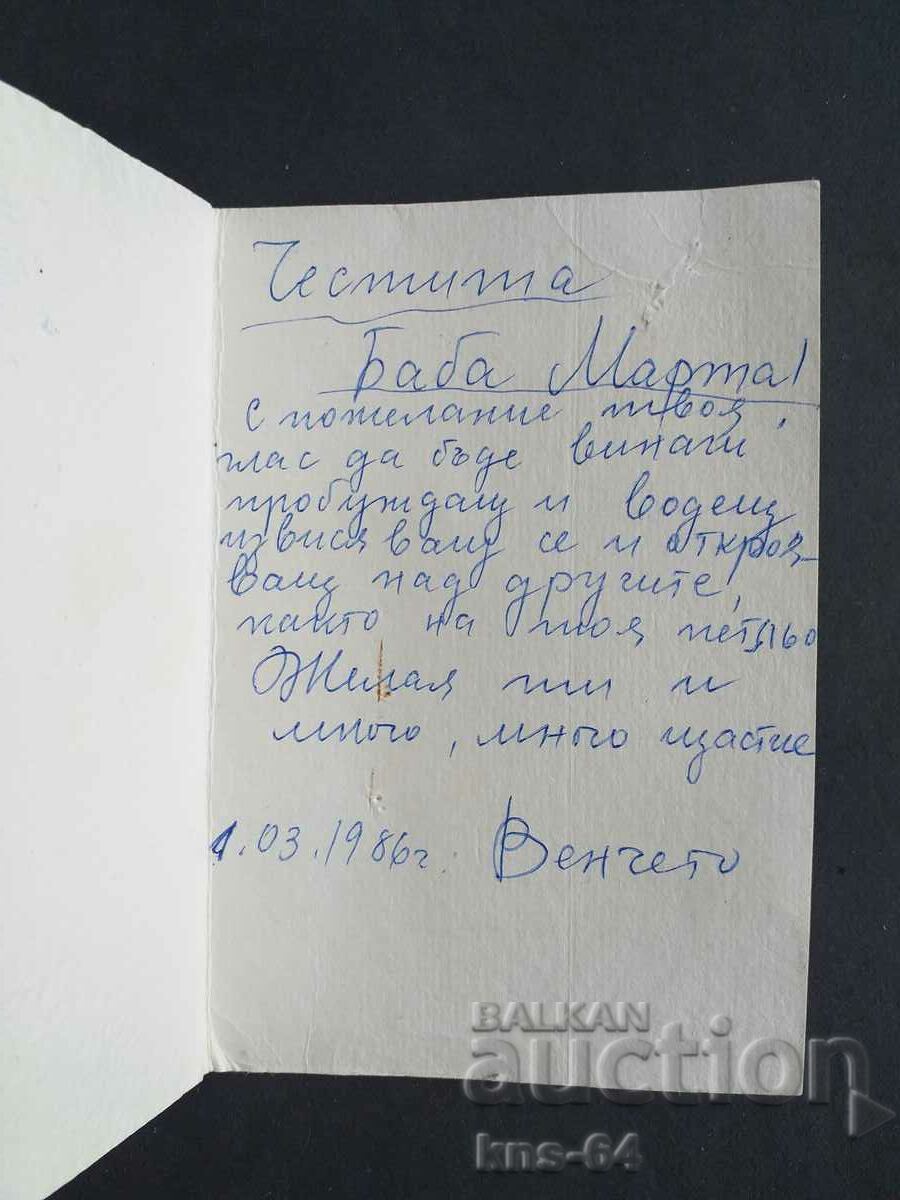 Честита
Баба Марта!
С пожелание твоя
глас да бъде винаги
пробуждащ и водещ
извисяващ се и откроя-
ващ над другите,
както на тоя петльо
Желая ти и
много, много щастие
1.03.1986г. Венчето
BALKAN
auction
kns-64